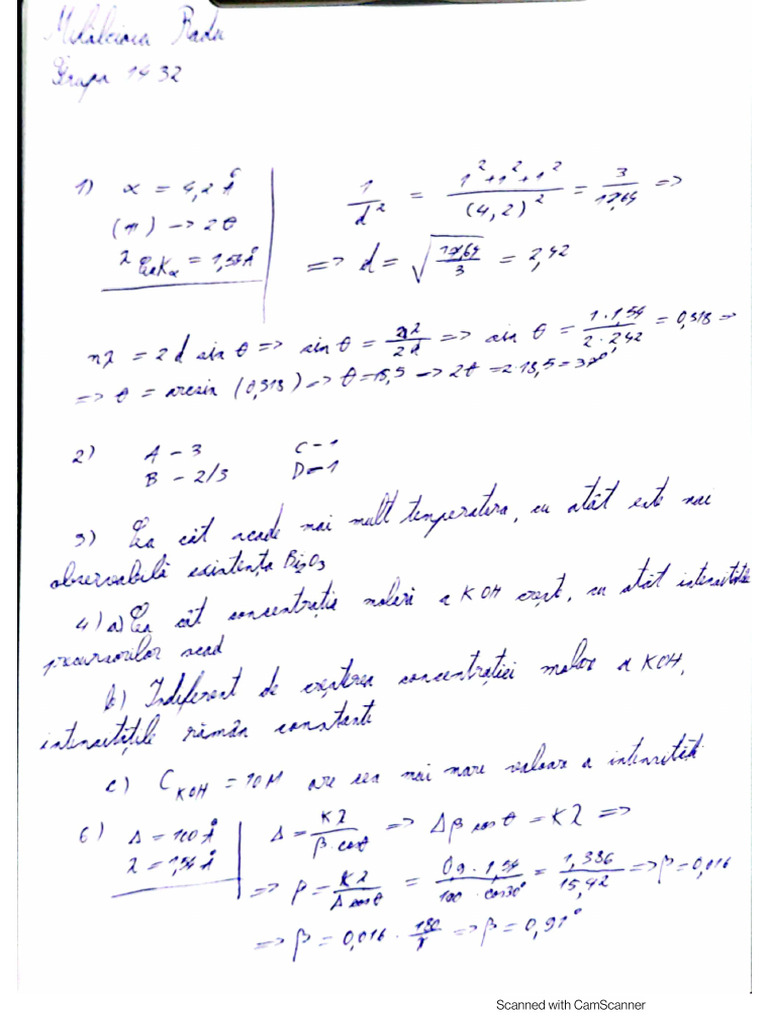 Radu
Grupa 1432
1) α = 4,2 Å
(111) -> 2θ
λ CuKα = 1,54 Å
1/d² = (1²+1²+1²)/(4,2)² = 3/17,64 =>
=> d = √(17,64/3) = 2,42
nλ = 2d sin θ => sin θ = nλ/2d => sin θ = (1·1,54)/(2·2,42) = 0,318 =>
=> θ = arcsin (0,318) => θ = 18,5 -> 2θ = 2·18,5 = 37°
2) A - 3 C - 1
B - 2/3 D - 1
3) Cu cât scade mai mult temperatura, cu atât este mai
observabilă existența Bi2O3
4) a) Cu cât concentrația molară a KOH crește, cu atât intensitatea
precursorilor scad
b) Indiferent de creșterea concentrației molare a KOH,
intensitățile rămân constante
c) C KOH = 10M are cea mai mare valoare a intensității
6) Δ = 100 Å
λ = 1,54 Å
Δ = Kλ/(β·cosθ) => Δβ cosθ = Kλ =>
=> β = Kλ/(Δ cosθ) = (0,9·1,54)/(100·cos30°) = 1,386/15,42 => β = 0,016
=> β = 0,016 · 180/π => β = 0,91°
Scanned with CamScanner